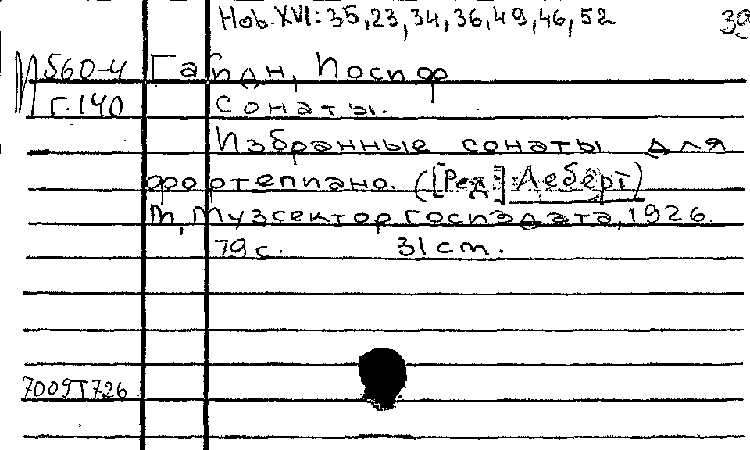 Hob. XVI: 35, 23, 34, 36, 49, 46, 52
39
М 560-4 Гайдн, Иосиф
Г.140 Сонаты.
Избранные сонаты для
фортепиано. ([Ред.] Леберт)
М, Музсектор Госиздата, 1926.
79 с. 31 cm.
7009Т726